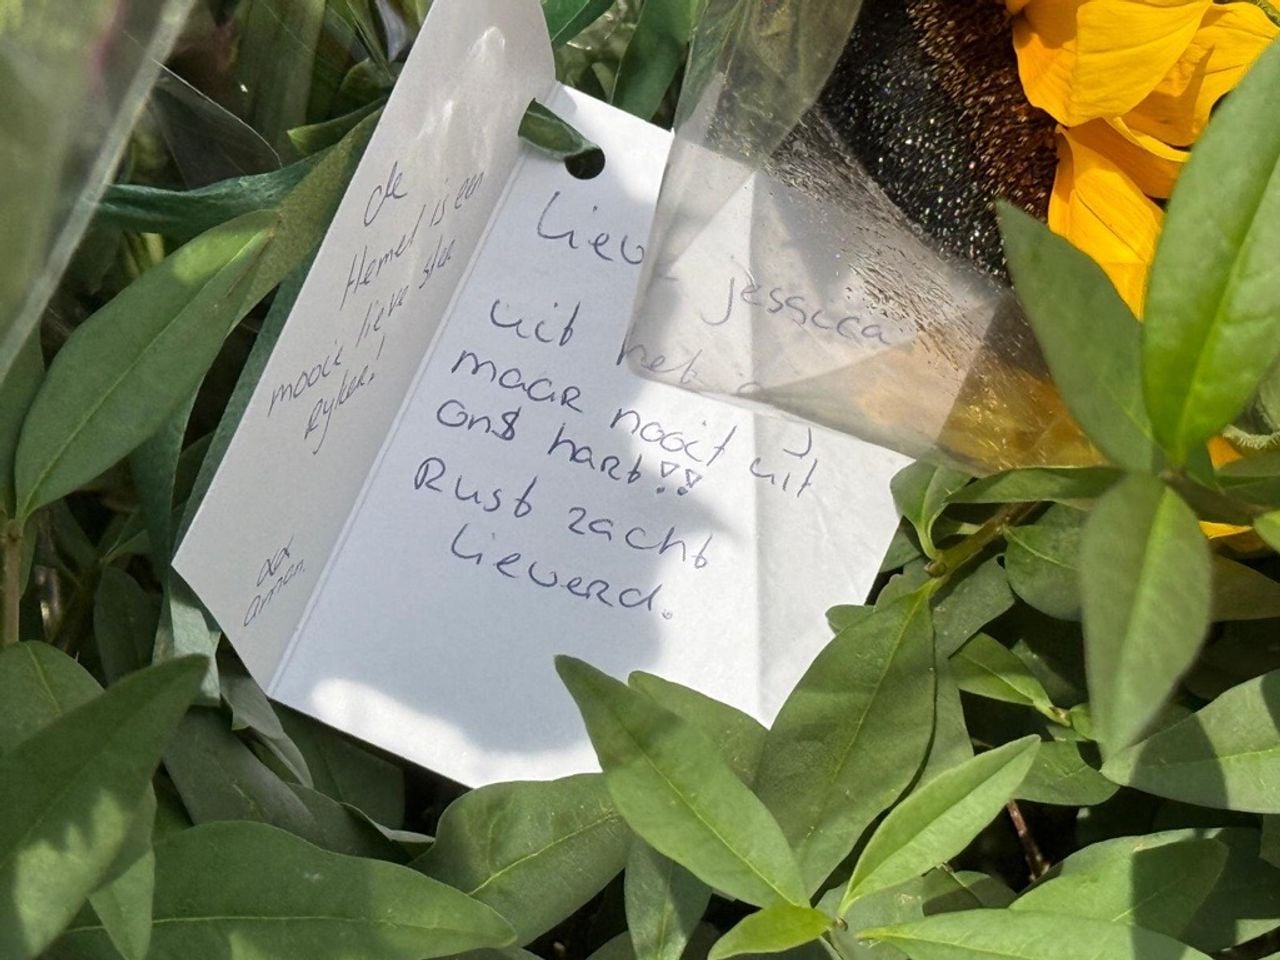 de
Hemel is een
mooie lieve ster
Ryker!
xxx
Lieve Jessica
uit het oog
maar nooit uit
ons hart!!
Rust zacht
Lieverd.